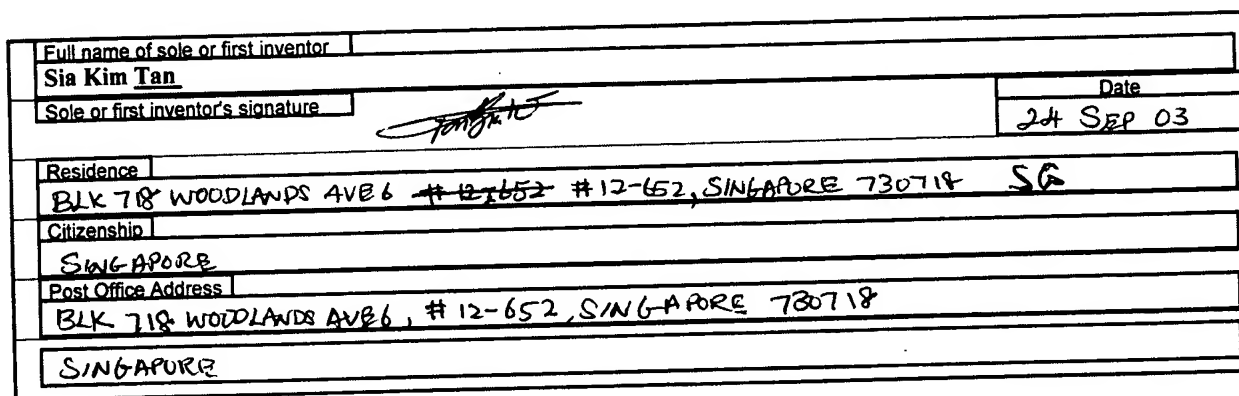 Full name of sole or first inventor
Sia Kim Tan
Sole or first inventor's signature
Date
24 SEP 03
Residence
BLK 718 WOODLANDS AVE 6 # 12-652 # 12-652, SINGAPORE 730718 SG
Citizenship
SINGAPORE
Post Office Address
BLK 718 WOODLANDS AVE 6, # 12-652, SINGAPORE 730718
SINGAPORE